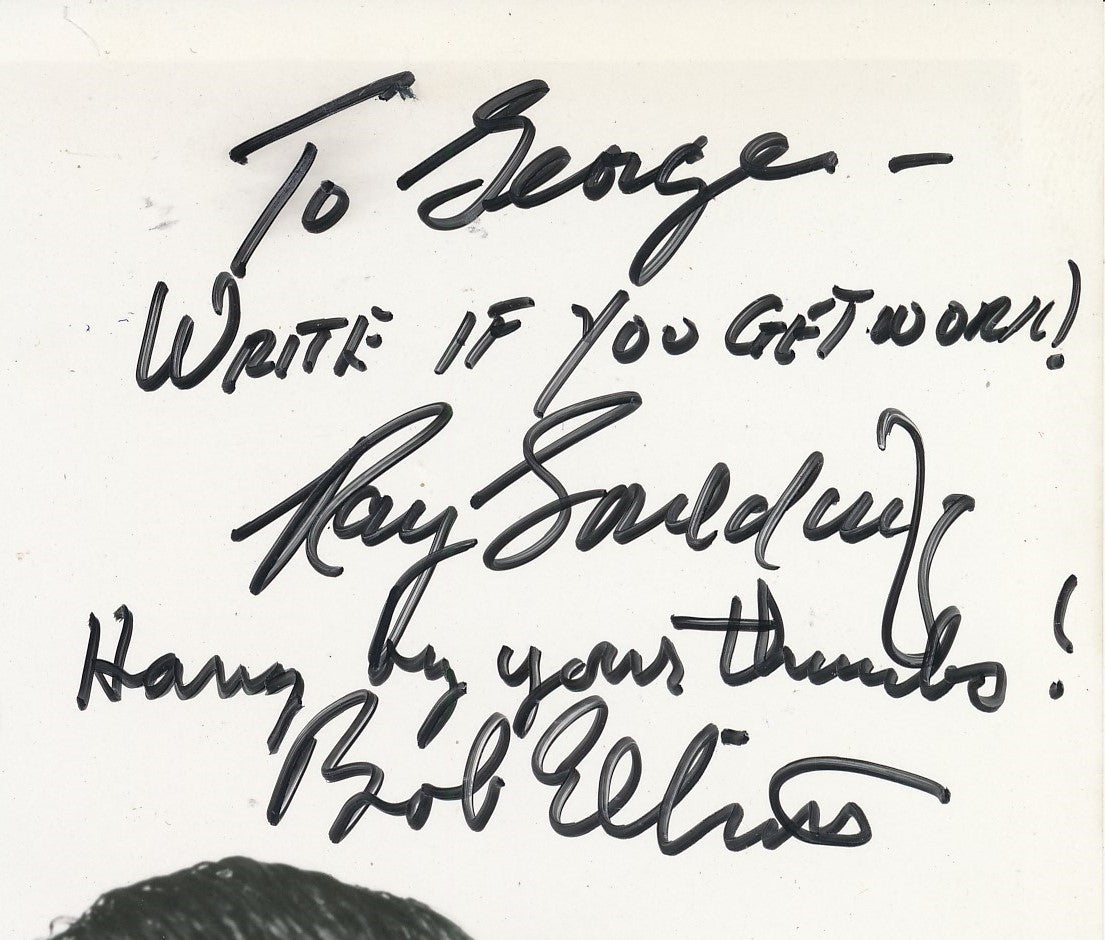 To George -
WRITE IF YOU GET WORK!
Ray Goulding
Hang by your thumbs!
Bob Elliott